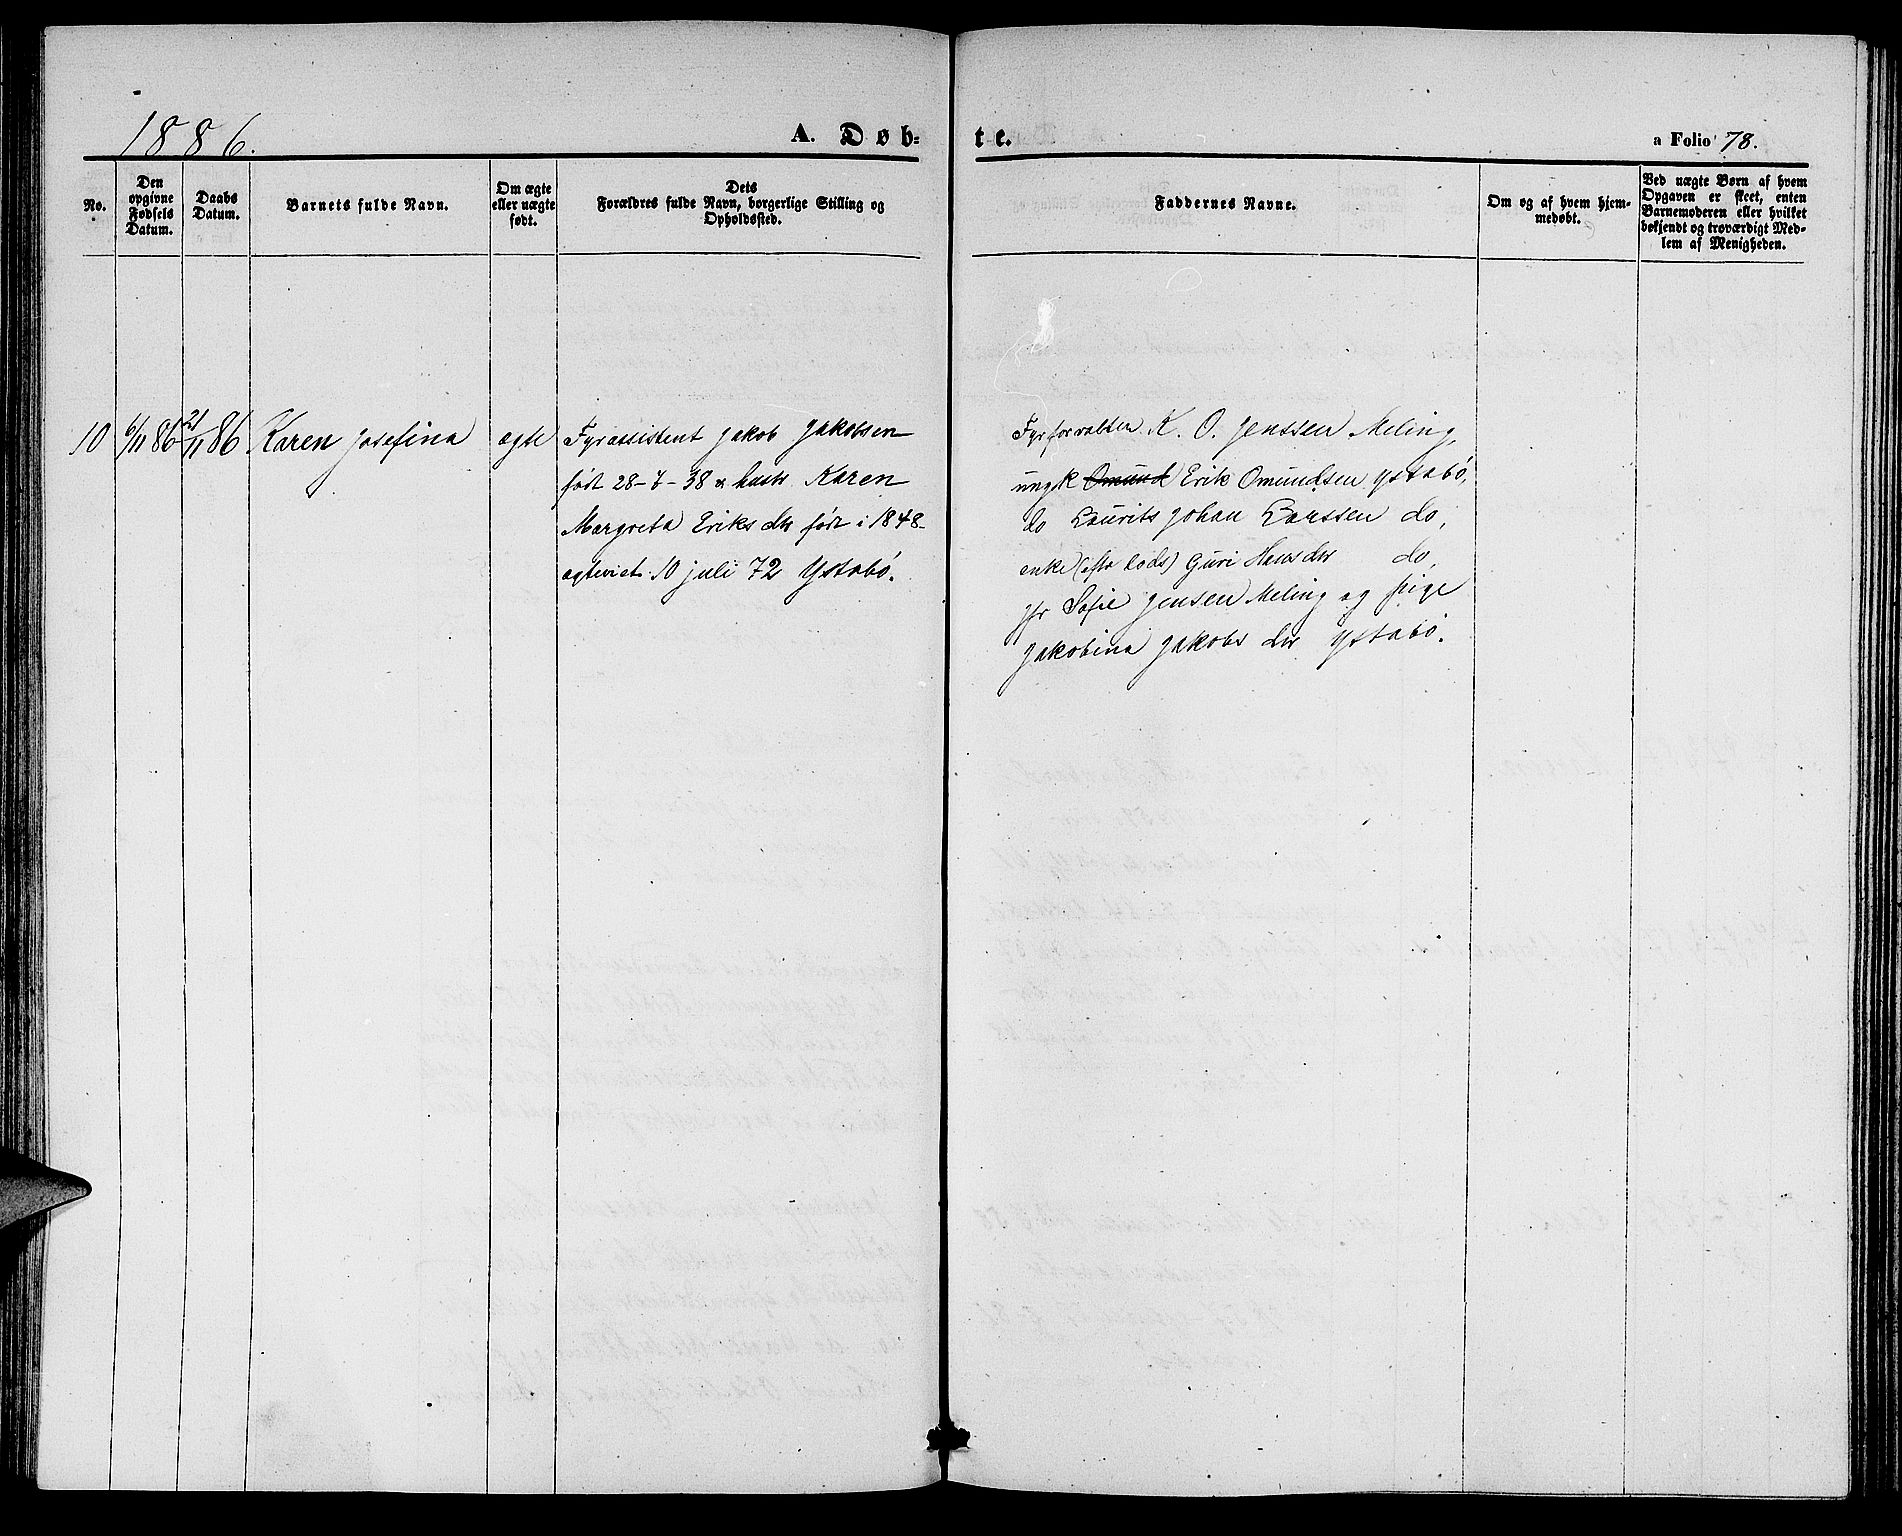 1886.
A. Døb-
te.
a Folio 78.
No.
Den
opgivne
Fødsels
Datum.
Daabs
Datum.
Barnets fulde Navn.
Om ægte
eller uægte
født.
Dets
Forældres fulde Navn, borgerlige Stilling og
Opholdssted.
Faddernes Navne.
Om og af hvem hjem-
medøbt.
Ved uægte Børn af hvem
Opgaven er skeet, enten
Barnemoderen eller hvilket
bekjendt og troværdigt Med-
lem af Menigheden.
10 6/11 86 21/11 86 Karen Josefina ægte Fyrassistent Jakob Jakobsen
født 28-7-38 & hustr Karen
Margreta Eriks dtr født i 1848-
ægteviet 10 juli 72 Ystabø.
Fyrforvalter K. O. Jenssen Meling,
ungk Omund Erik Omundsen Ystabø,
do Laurits Johan Larssen do,
enke (efter Lods) Guri Hans dtr do,
jfr Sofie Jensen Meling og pige
Jakobina Jakobs dtr Ystabø.